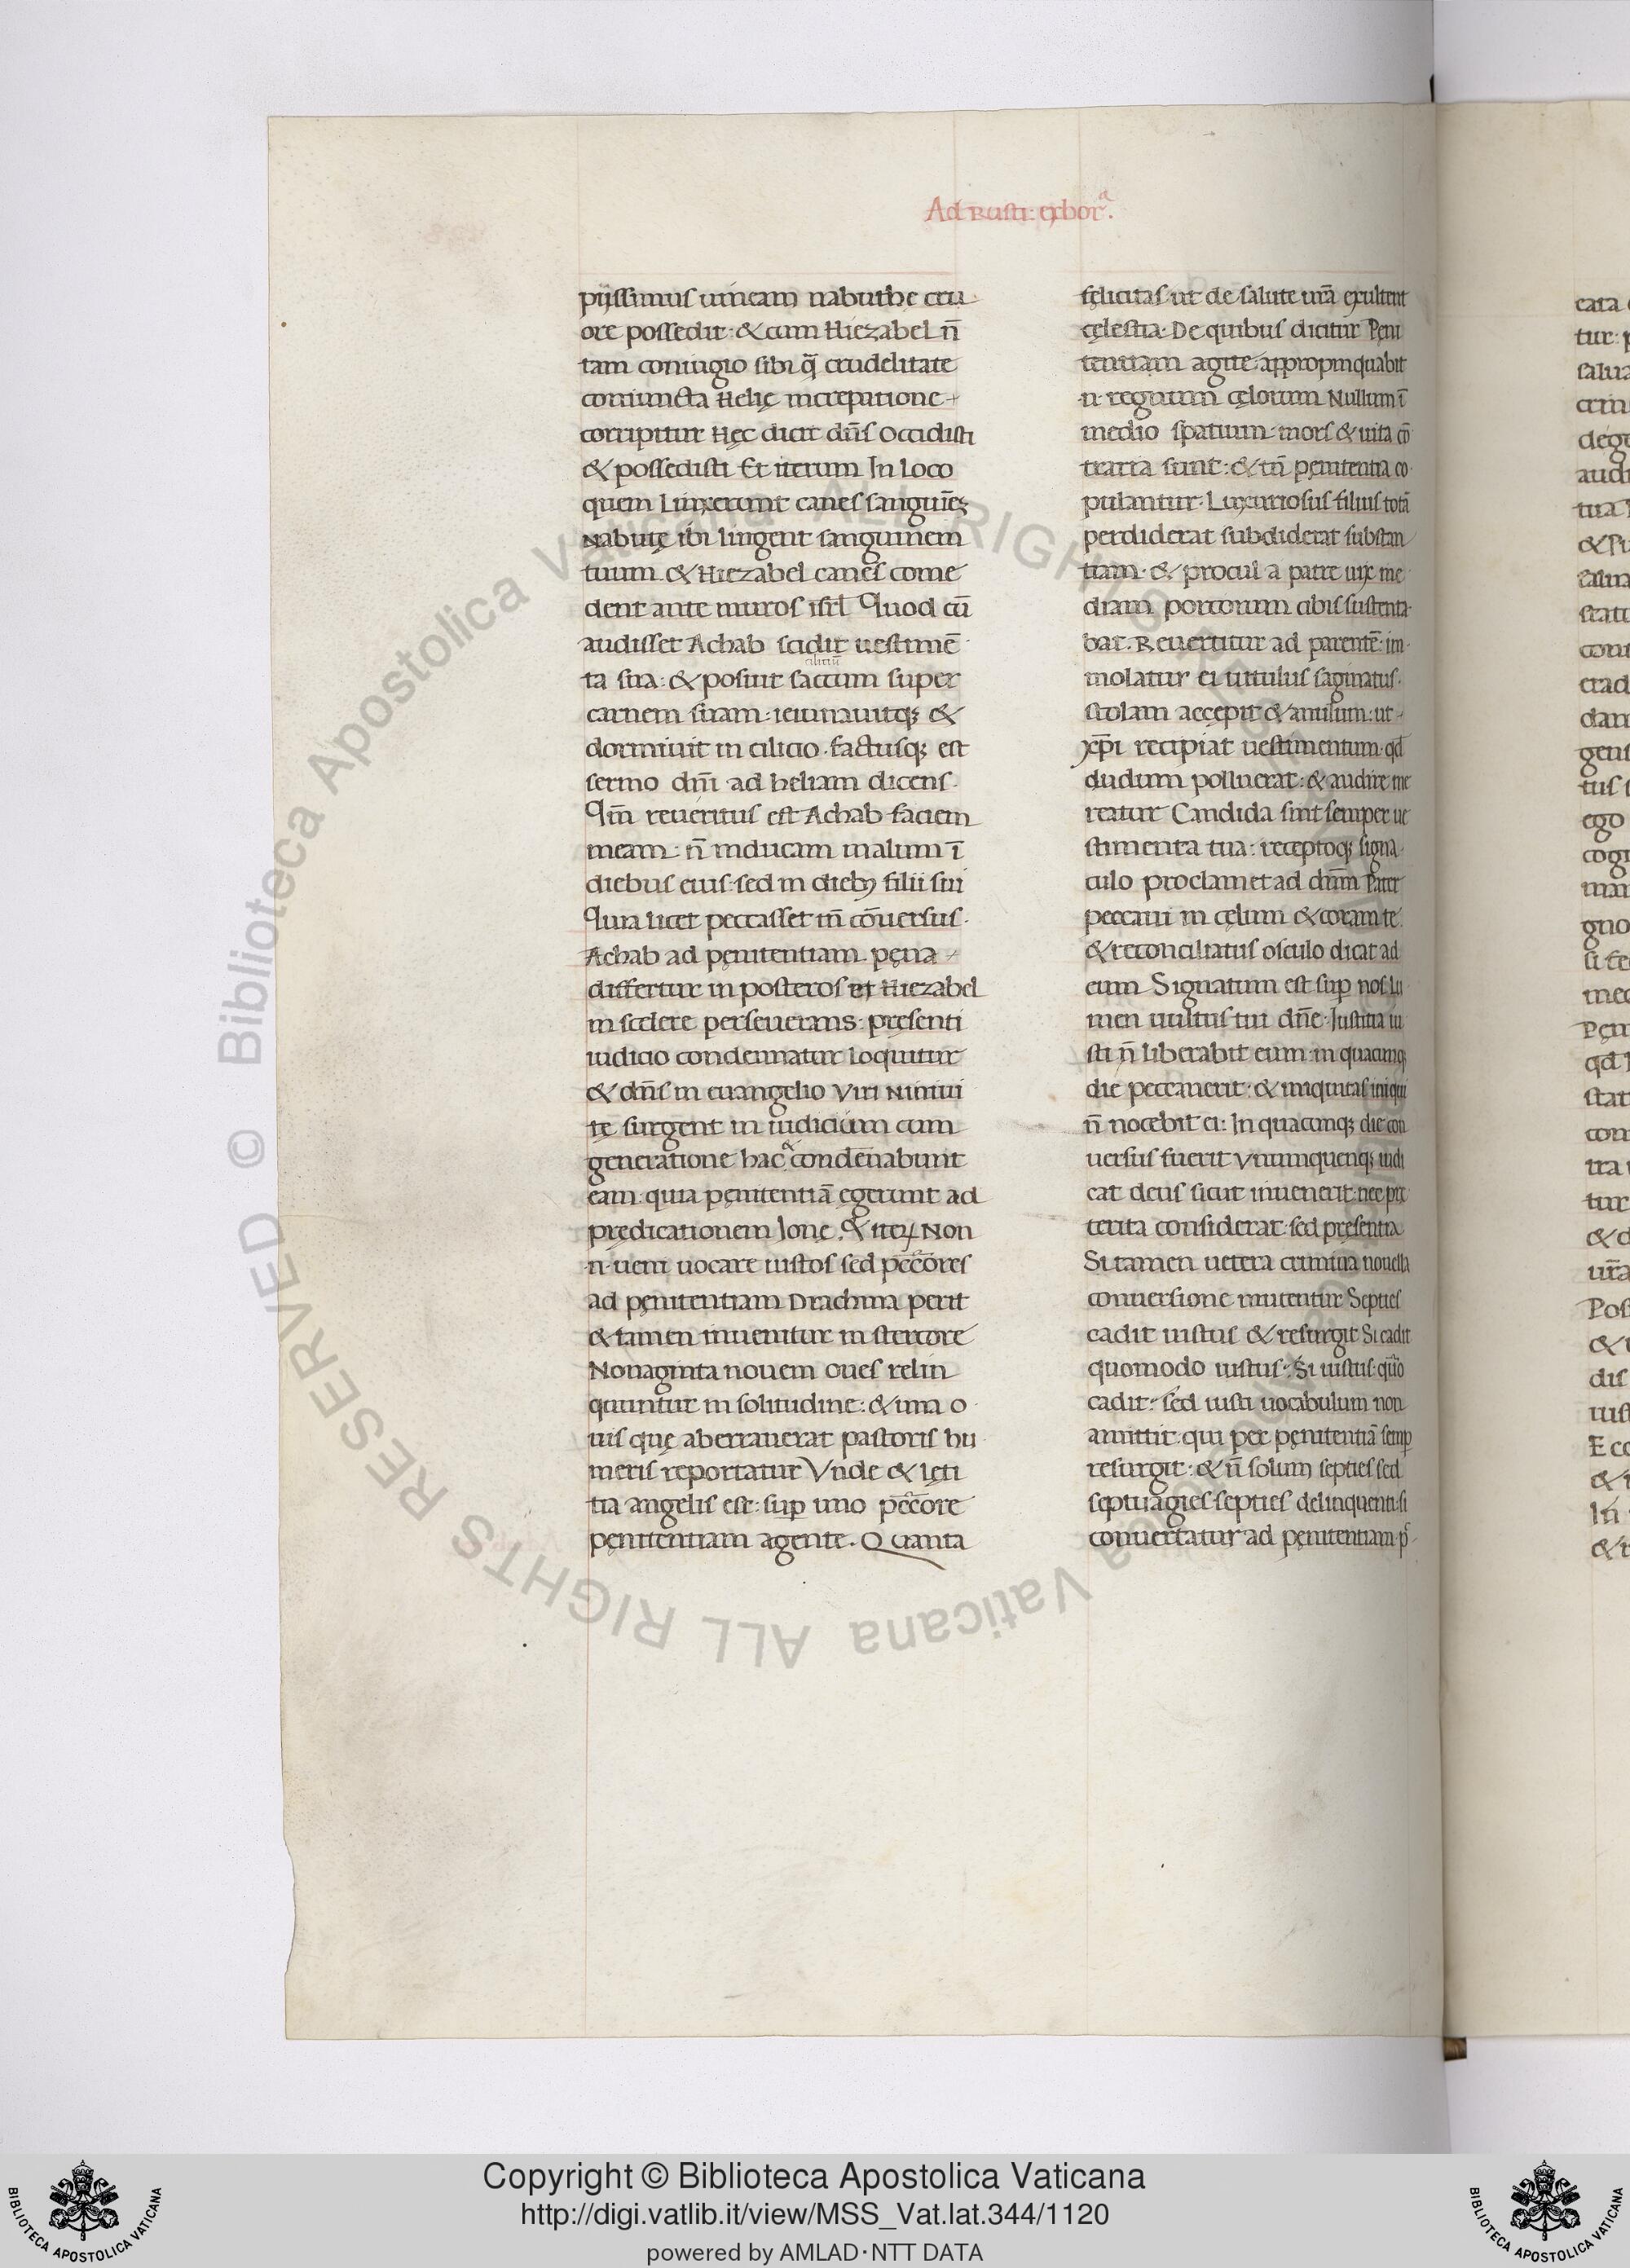 Ad Rusti: exhorᵃ.
pijssimus uineam nabuthę cru
ore possedit: & cum Hiezabel n̄
tam coniugio sibi q̄ crudelitate
coniuncta Helię increpatione
corripitur Hęc dicit dn̄s Occidisti
& possedisti Et iterum In loco
quem Linxerunt canes sanguinē
Nabutę ibi lingent sanguinem
tuum & Hiezabel canes come
dent ante muros isrl̄ Quod cū
audisset Achab scidit uestimē
cilitiū
ta sua: & posuit saccum super
carnem suam: ieiunauitq; &
dormiuit in cilicio. factusq; est
sermo dn̄i ad heliam dicens.
Qm̄ reueritus est Achab faciem
meam: n̄ inducam malum ī
diebus eius. sed in dieb; filii sui
Quia licet peccasset m̄ cōuersus.
Achab ad pęnitentiam. pęna
differtur in posteros et Hiezabel
in scelere perseuerans. pręsenti
iudicio condemnatur loquitur
& dn̄s in euangelio Viri Niniui
tę surgent in iudicium cum
generatione hac & condēnabunt
eam: quia pęnitentiā egerunt ad
prędicationem Ionę. & iteꝝ Non
·n· ueni uocare iustos sed pecc̄ores
ad pęnitentiam Drachma perit
& tamen inuenitur in stercore
Nonaginta nouem oues relin
quuntur in solitudine: & una o
uis quę aberrauerat pastoris hu
meris reportatur Vnde & lęti
tia angelis est: sup̄ uno pecc̄ore
penitentiam agente. Quanta
fęlicitas ut de salute ur̄a exultent
cęlestia. De quibus dicitur Pęni
tentiam agite. appropinquabit
·n· regnum cęlorum Nullum ī
medio spatium. mors & uita cō
traria sunt: & tn̄ pęnitentia co
pulantur. Luxuriosus filius totā
perdiderat subdiderat substan
tiam. & procul a patre uix me
diam porcorum cibis sustenta
bat. Reuertitur ad parentē: im
molatur ei uitulus saginatus.
stolam accępit & anulum: ut
xp̄i recipiat uestimentum. qd̄
dudum polluerat: & audire me
reatur Candida sint semper ue
stimenta tua: receptoq; signa
culo proclamet ad dn̄m Pater
peccaui in cęlum & coram te.
& reconciliatus osculo dicat ad
eum Signatum est sup̄ nos lu
men uultus tui dn̄e. Iustitia iu
sti n̄ liberabit eum: in quacunq;
die peccauerit: & iniquitas iniqui
n̄ nocebit ei: In quacunq; die con
uersus fuerit Vnumquenq; iudi
cat deus sicut inuenerit: nec prę
terita considerat. sed pręsentia
Si tamen uetera crimina nouella
conuersione mutentur Septies
cadit iustus & resurgit Si cadit
quomodo iustus. Si iustus. quō
cadit: sed iusti uocabulum non
amittit. qui per pęnitentiā semp̄
resurgit: & n̄ solum septies sed
septuagies septies delinquenti. si
conuertatur ad pęnitentiam. p̄
Copyright © Biblioteca Apostolica Vaticana
http://digi.vatlib.it/view/MSS_Vat.lat.344/1120
powered by AMLAD·NTT DATA
BIBLIOTECA APOSTOLICA VATICANA
BIBLIOTECA APOSTOLICA VATICANA
© Biblioteca Apostolica Vaticana ALL RIGHTS RESERVED